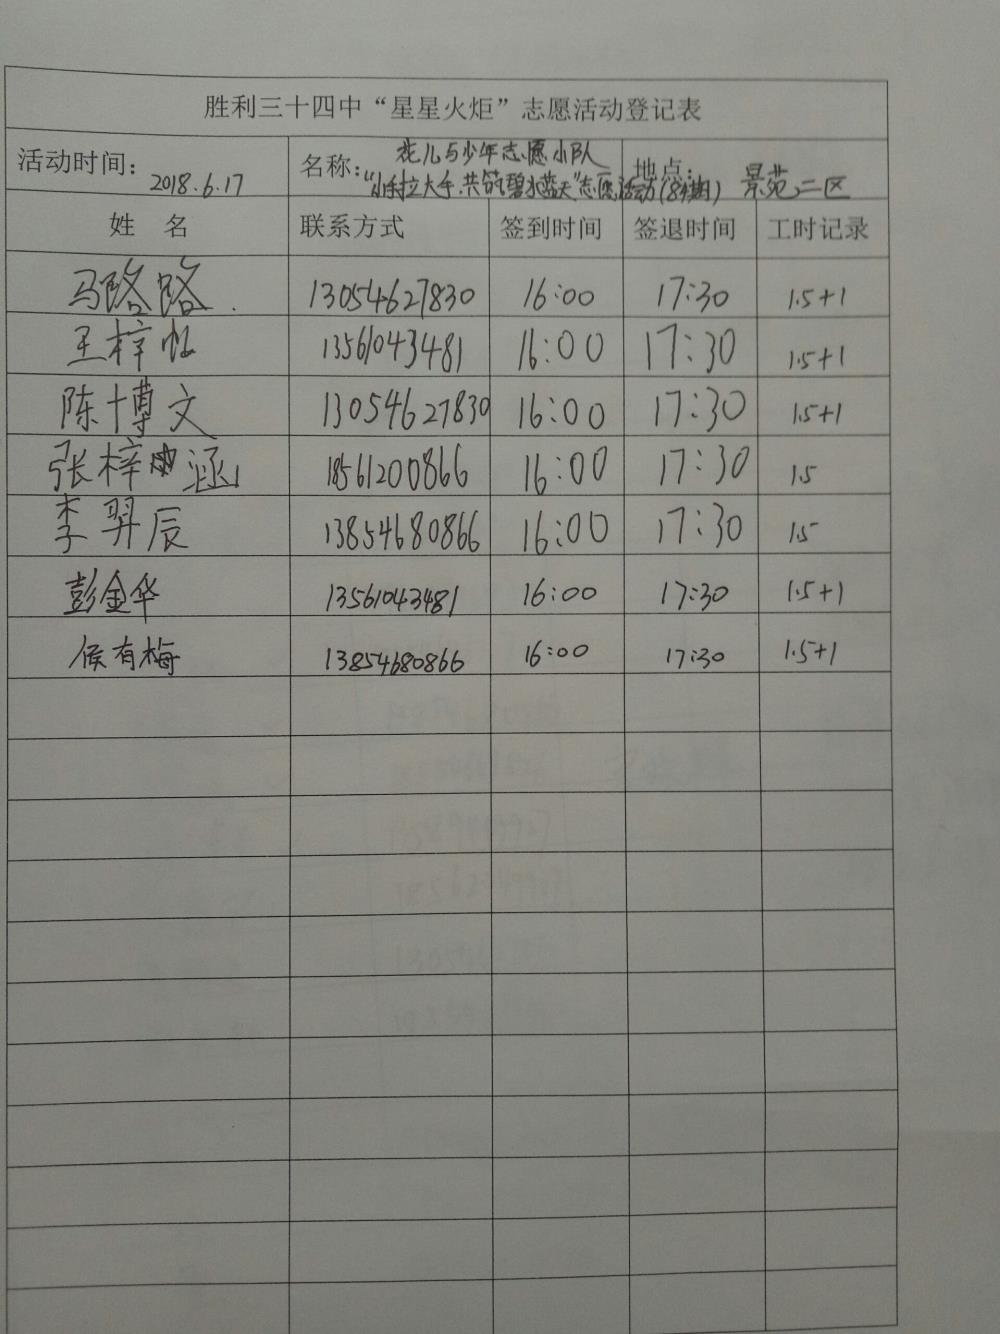 胜利三十四中“星星火炬”志愿活动登记表
活动时间: 2018.6.17 名称: 花儿与少年志愿小队 地点: 景苑二区
“小手拉大手.共筑碧水蓝天”志愿活动(84期)
姓 名 联系方式 签到时间 签退时间 工时记录
马路路 13054627830 16:00 17:30 1.5+1
王梓 13561043481 16:00 17:30 1.5+1
陈博文 13054627830 16:00 17:30 1.5+1
张梓涵 18561200866 16:00 17:30 1.5
李羿辰 13854680866 16:00 17:30 1.5
彭金华 13561043481 16:00 17:30 1.5+1
候有梅 13854680866 16:00 17:30 1.5+1